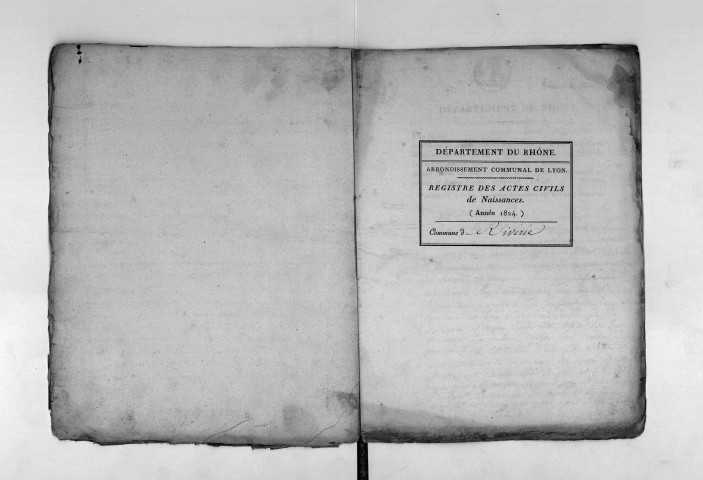 DÉPARTEMENT DU RHÔNE.
ARRONDISSEMENT COMMUNAL DE LYON.
REGISTRE DES ACTES CIVILS
de Naissances.
( Année 1824. )
Commune d Riverie